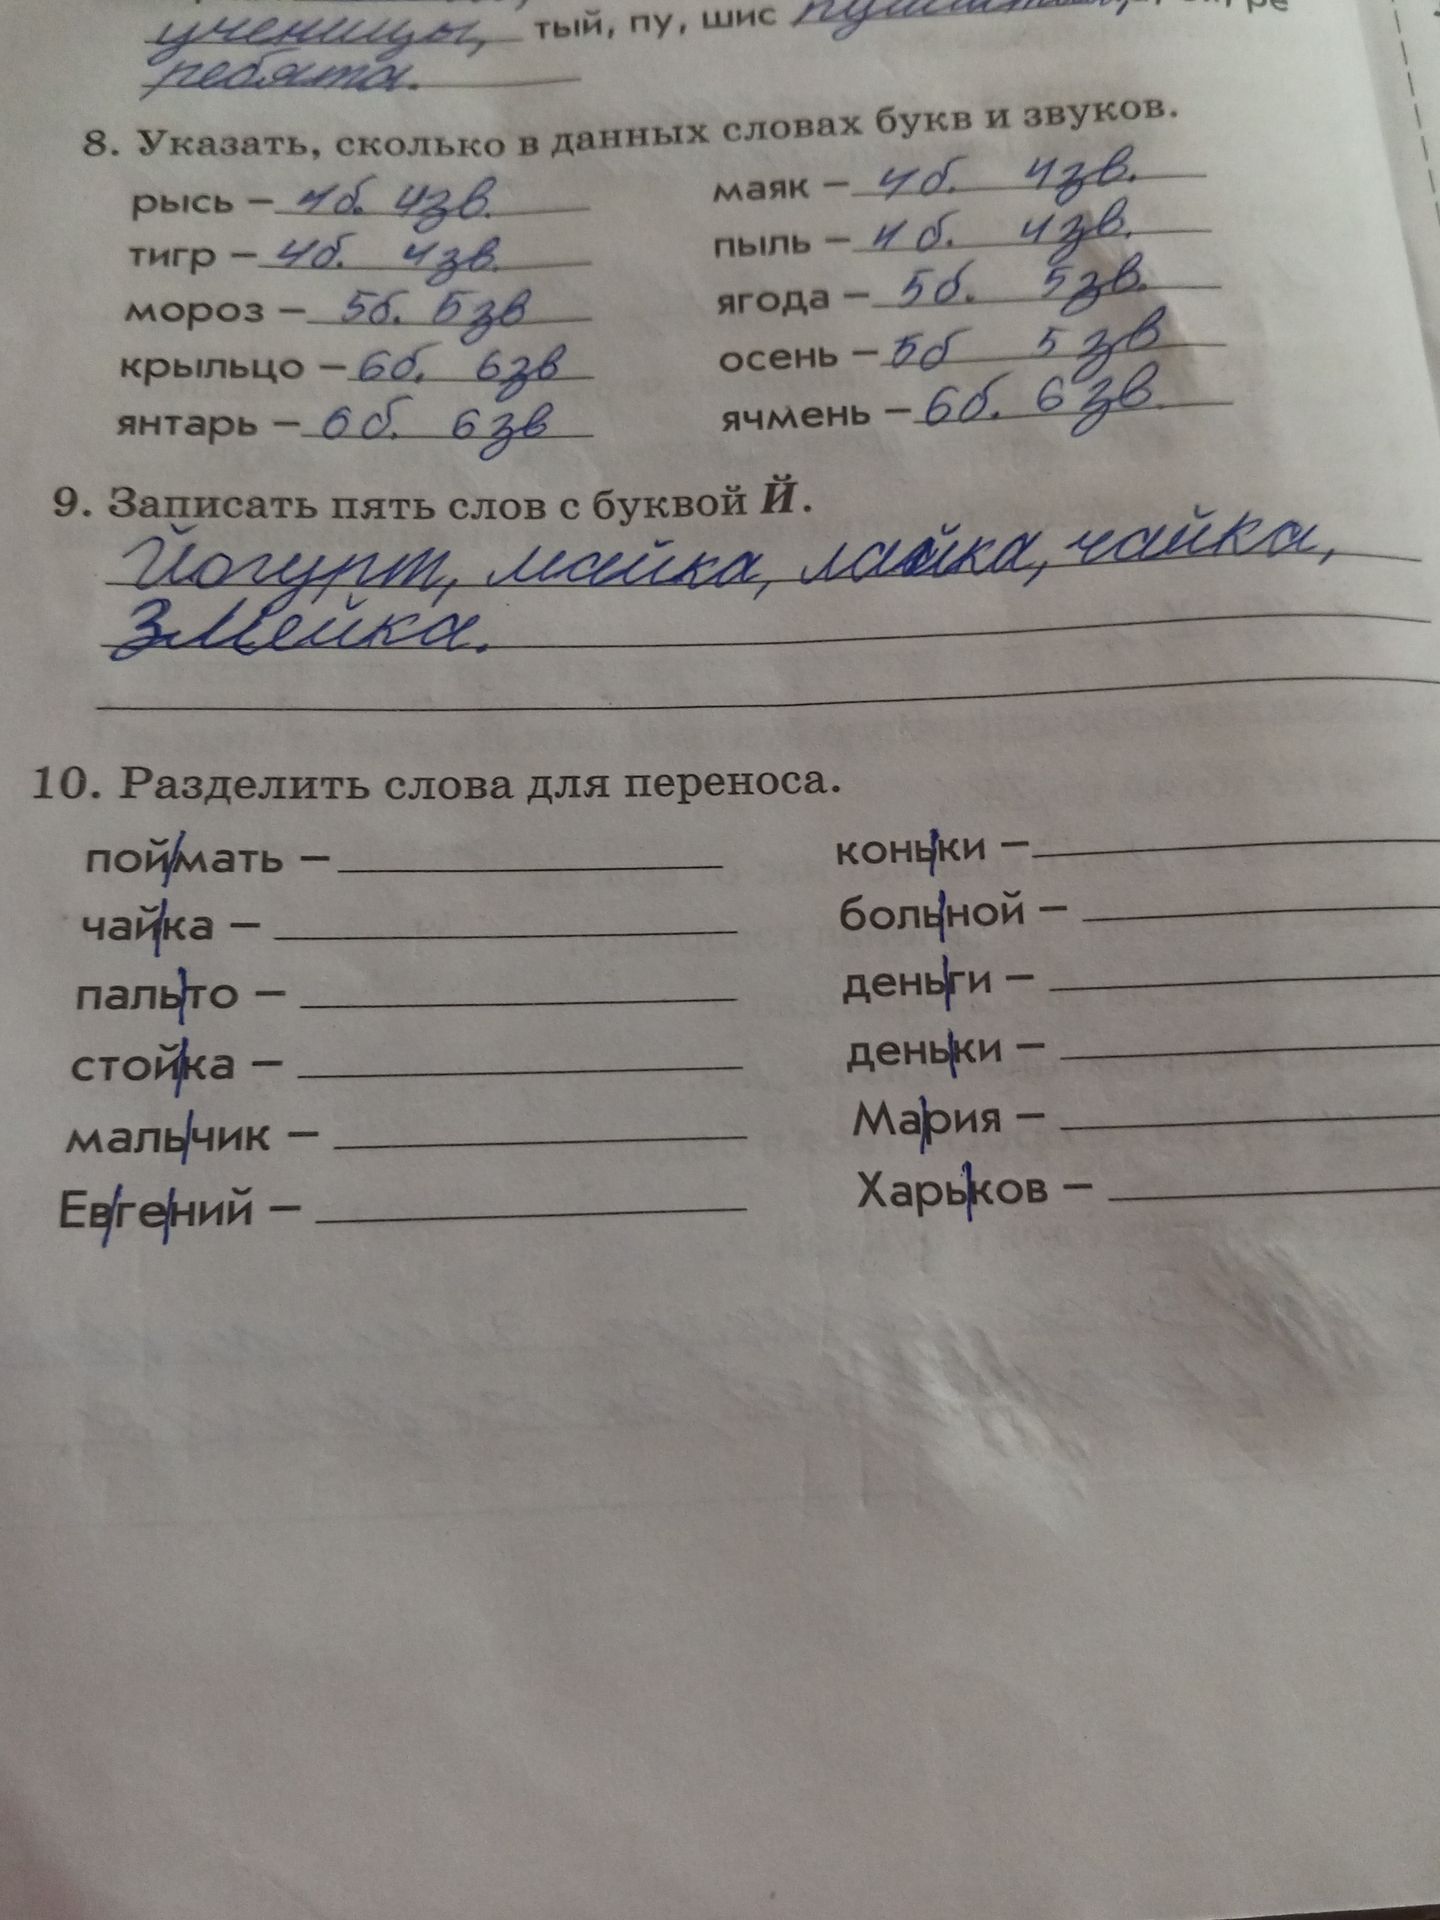 ученицы, тый, пу, шис
ребята.
8. Указать, сколько в данных словах букв и звуков.
рысь – 4б. 4зв. маяк – 4б. 4зв.
тигр – 4б. 4зв. пыль – 4б. 4зв.
мороз – 5б. 5зв ягода – 5б. 5зв.
крыльцо – 6б. 6зв осень – 5б 5зв
янтарь – 6б. 6зв ячмень – 6б. 6зв
9. Записать пять слов с буквой Й.
Йогурт, майка, лайка, чайка,
Змейка.
10. Разделить слова для переноса.
пой/мать – конь/ки –
чай/ка – боль/ной –
паль/то – день/ги –
стой/ка – день/ки –
маль/чик – Ма/рия –
Ев/ге/ний – Харь/ков –